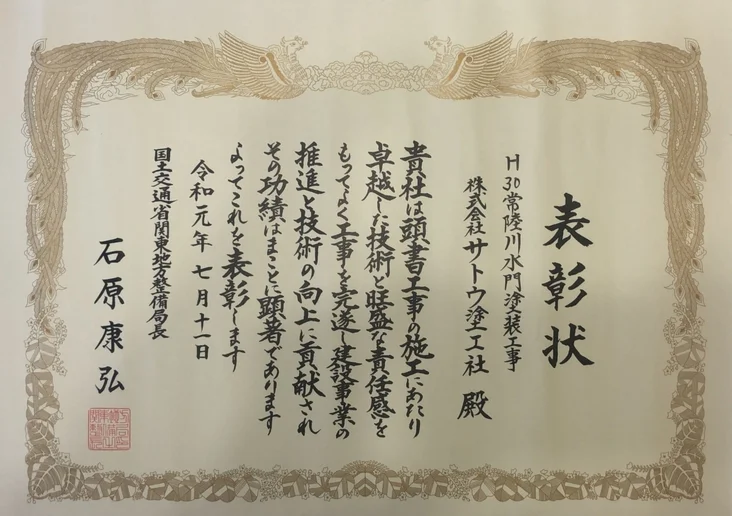 表彰状
H30常陸川水門塗装工事
株式会社サトウ塗工社 殿
貴社は頭書工事の施工にあたり
卓越した技術と旺盛な責任感を
もってよく工事を完遂し建設事業の
推進と技術の向上に貢献され
その功績はまことに顕著であります
よってこれを表彰します
令和元年七月十一日
国土交通省関東地方整備局長
石原康弘